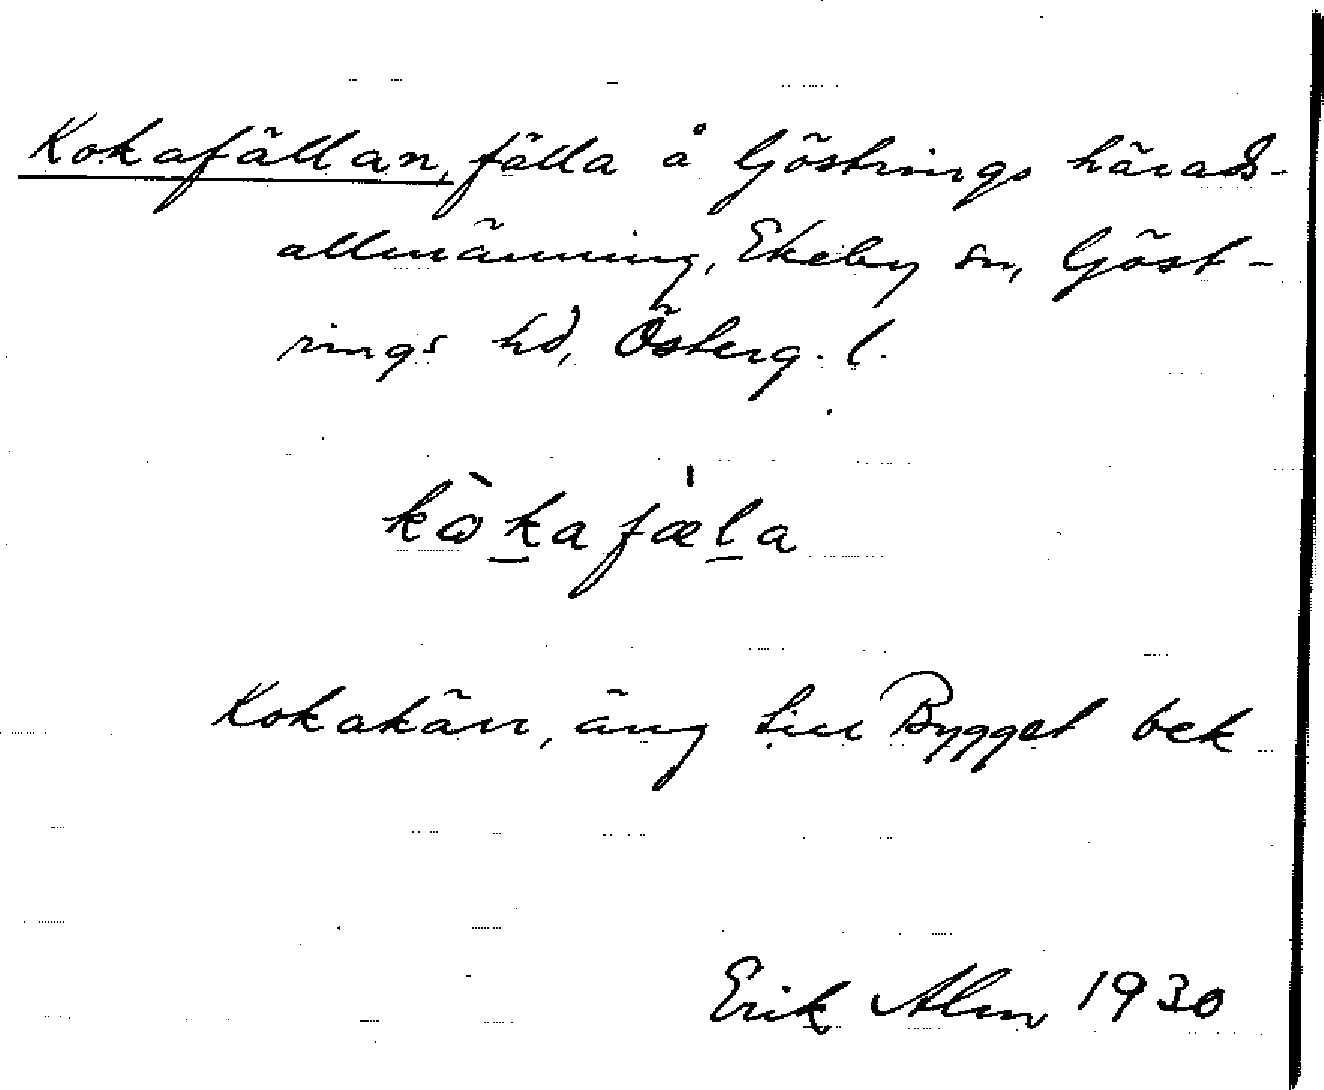 Kokafällan, fälla å Göstrings härads-
allmänning, Ekeby sn, Göst-
rings hd, Österg. l.
kὼk̲afæl̲a
Kokakärr, äng till Bygget bek
Erik Alm 1930